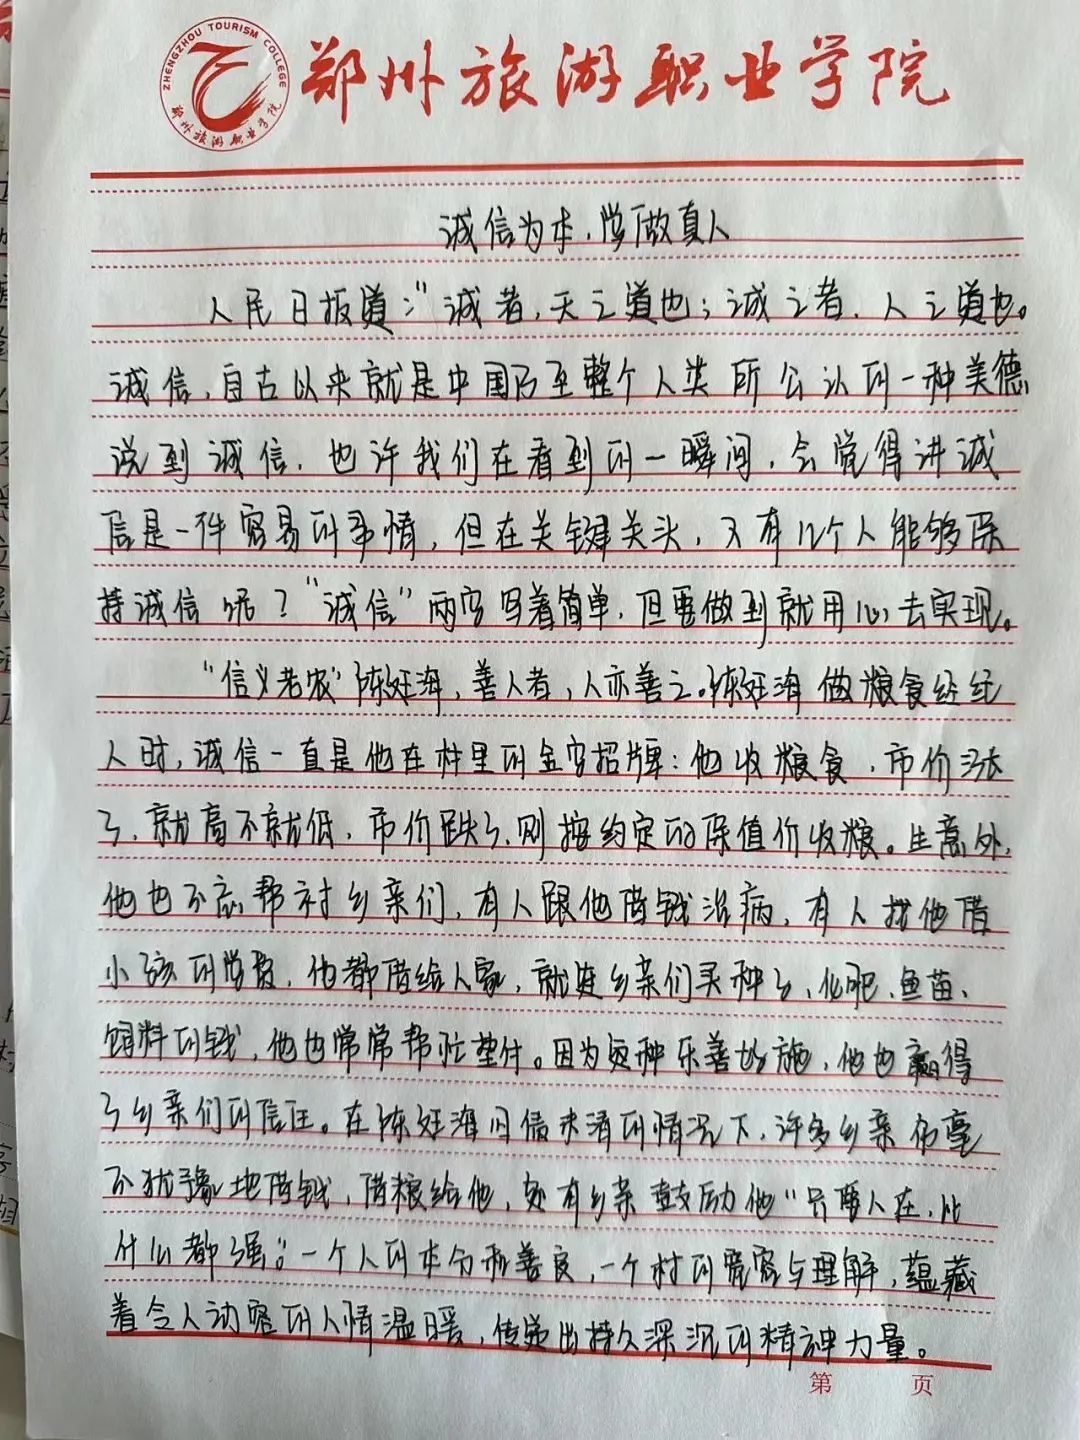 ZHENGZHOU TOURISM COLLEGE
郑州旅游职业学院
郑州旅游职业学院
诚信为本,学做真人
人民日报道:"诚者,天之道也;诚之者,人之道也。
诚信,自古以来就是中国乃至整个人类所公认的一种美德
说到诚信,也许我们在看到的一瞬间,会觉得讲诚
信是一件容易的事情,但在关键关头,又有几个人能够保
持诚信呢?"诚信"两字写着简单,但要做到就用心去实现。
"信义老农"陈廷海,善人者,人亦善之。陈廷海做粮食经纪
人时,诚信一直是他在村里的金字招牌:他收粮食,市价涨
了,就高不就低,市价跌了,则按约定的保值价收粮。生意外,
他也不忘帮衬乡亲们,有人跟他借钱治病,有人找他借
小孩的学费,他都借给人家,就连乡亲们买种子,化肥、鱼苗、
饲料的钱,他也常常帮忙垫付。因为这种乐善好施,他也赢得
了乡亲们的信任。在陈廷海旧债未清的情况下,许多乡亲仍毫
不犹豫地借钱,借粮给他,还有乡亲鼓励他"只要人在,比
什么都强。"一个人的本分和善良,一个村的宽容与理解,蕴藏
着令人动容的人情温暖,传递出持久深沉的精神力量。
第 页